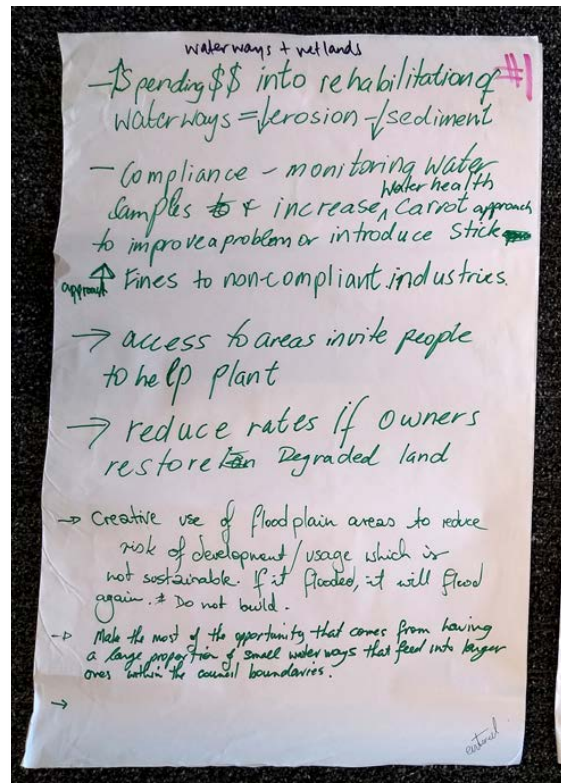 waterways + wetlands
#1
— ↑Spending $$ into rehabilitation of
waterways = ↓erosion - ↓sediment
— Compliance - monitoring water
Samples & increase water health carrot approach
to improve a problem or introduce stick
approach ↑ Fines to non-compliant industries.
→ access to areas invite people
to help plant
→ reduce rates if owners
restore Degraded land
→ Creative use of floodplain areas to reduce
risk of development/usage which is
not sustainable. If it flooded, it will flood
again. * Do not build.
→ Make the most of the opportunity that comes from having
a large proportion of small waterways that feed into larger
ones within the council boundaries.
→